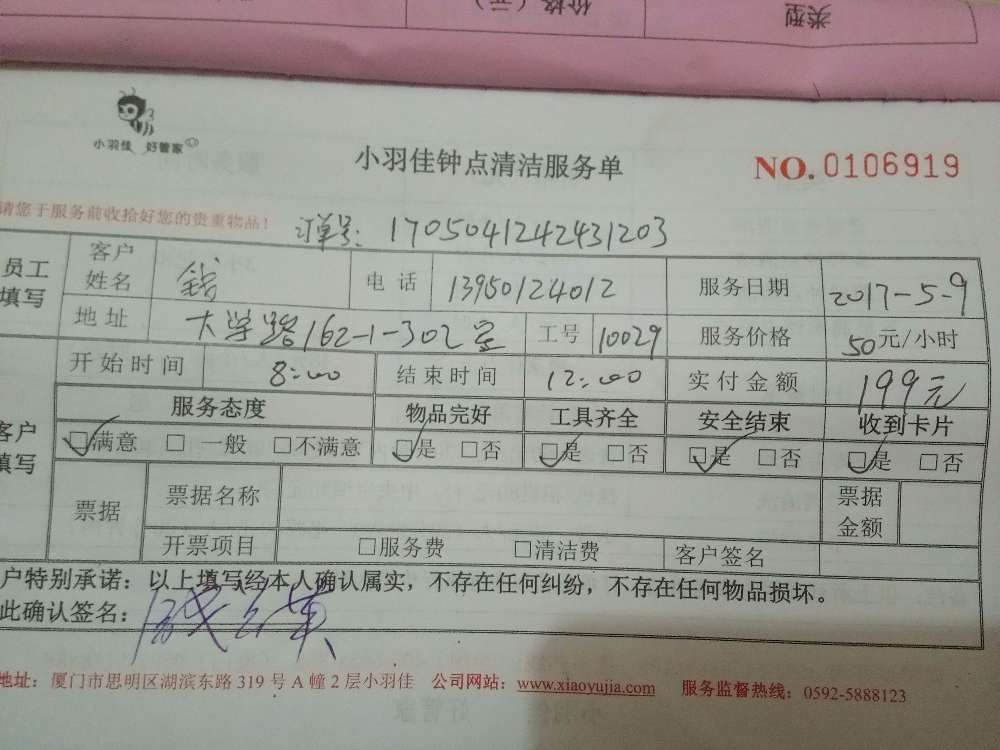 价格（元）
类型
小羽佳 好管家
小羽佳钟点清洁服务单
NO.0106919
请您于服务前收拾好您的贵重物品！
订单号：1705041242431203
员工填写 客户姓名 钱 电话 13950124012 服务日期 2017-5-9
地址 大学路162-1-302室 工号 10029 服务价格 50元/小时
客户填写 开始时间 8:00 结束时间 12:00 实付金额 199元
服务态度 物品完好 工具齐全 安全结束 收到卡片
☑满意 □一般 □不满意 ☑是 □否 ☑是 □否 ☑是 □否 ☑是 □否
票据 票据名称 票据金额
开票项目 □服务费 □清洁费 客户签名
户特别承诺：以上填写经本人确认属实，不存在任何纠纷，不存在任何物品损坏。
此确认签名：
地址：厦门市思明区湖滨东路 319 号 A 幢 2 层小羽佳 公司网站：www.xiaoyujia.com 服务监督热线：0592-5888123